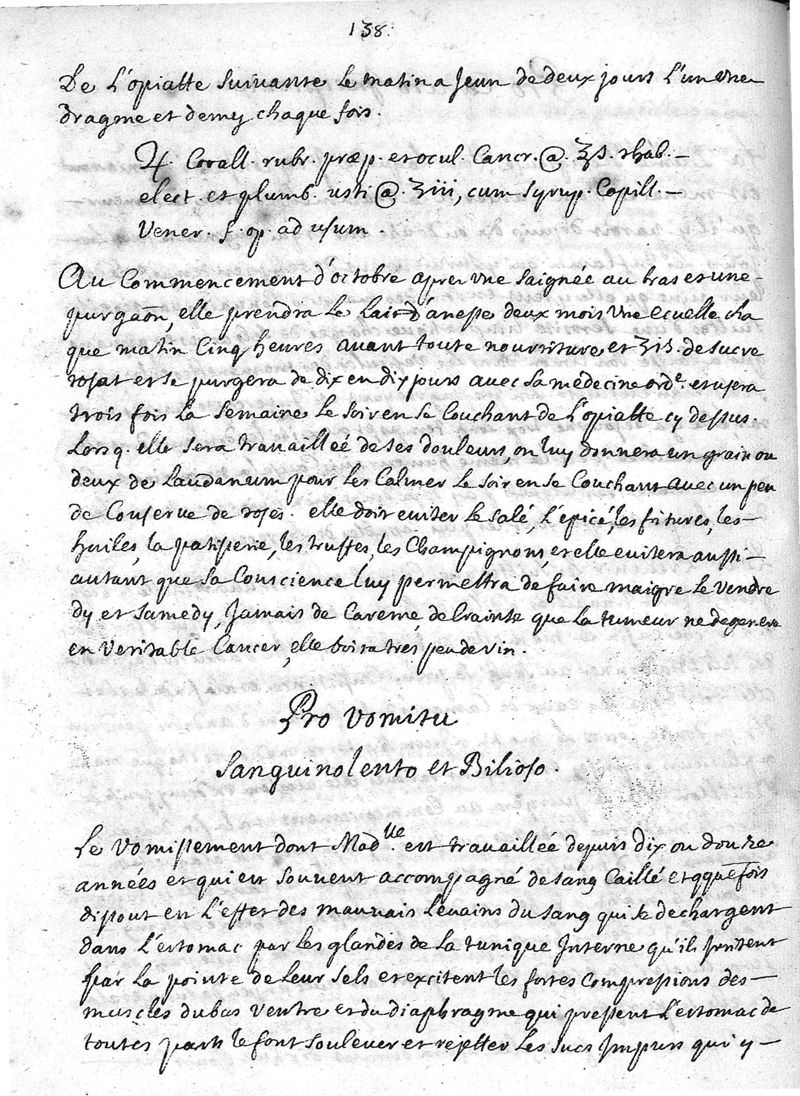 138.
De L'opiatte suivante le matin a Jeun de deux jours l'un une
dragme et demy chaque fois.
♃. Corall. rubr. præp. et ocul. Cancr. @. ʒs. rhab. —
elect. et plumb. usti @. ʒiii, cum syrup. Capill. —
Vener. f. op. ad usum.
Au Commencement d'octobre apres une saignée au bras et une -
purgaõn, elle prendra le Lait d'anesse deux mois une ecuelle cha
que matin Cinq heures avant toute nourriture et ʒis. de sucre
rosat et se purgera de dix en dix jours avec sa medecine ord.e et usera
trois fois la semaine le soir en se Couchant de L'opiatte cy dessus.
Lorsq. elle sera travailleé de ses douleurs, on luy donnera un grain ou
deux de Laudanum pour les Calmer le soir en se Couchant avec un peu
de Conserve de roses. elle doit eviter le salé, L'epicé, les fritures, les -
huiles, la patisserie, les truffes, les Champignons, et elle evitera aussi -
autant que sa Conscience luy permettra de faire maigre le vendre
dy et samedy, Jamais de Careme, de Crainte que la tumeur ne degenere
en veritable Cancer, elle boira tres peu de vin.
Pro vomitu
sanguinolento et Bilioso.
Le vomissement dont Mad.lle est travaillée depuis dix ou douze
années et qui est souvent accompagné de sang Caillé et qquefois
dissout est L'effet des mauvais Levains du sang qui se dechargent
dans L'estomac par les glandes de la tunique Interne qu'ils irritent
par la pointe de leur sels et excitent les fortes Compressions des -
muscles du bas ventre et du diaphragme qui pressent L'estomac de
toutes parts le font soulever et rejetter les sucs Impurs qui y -